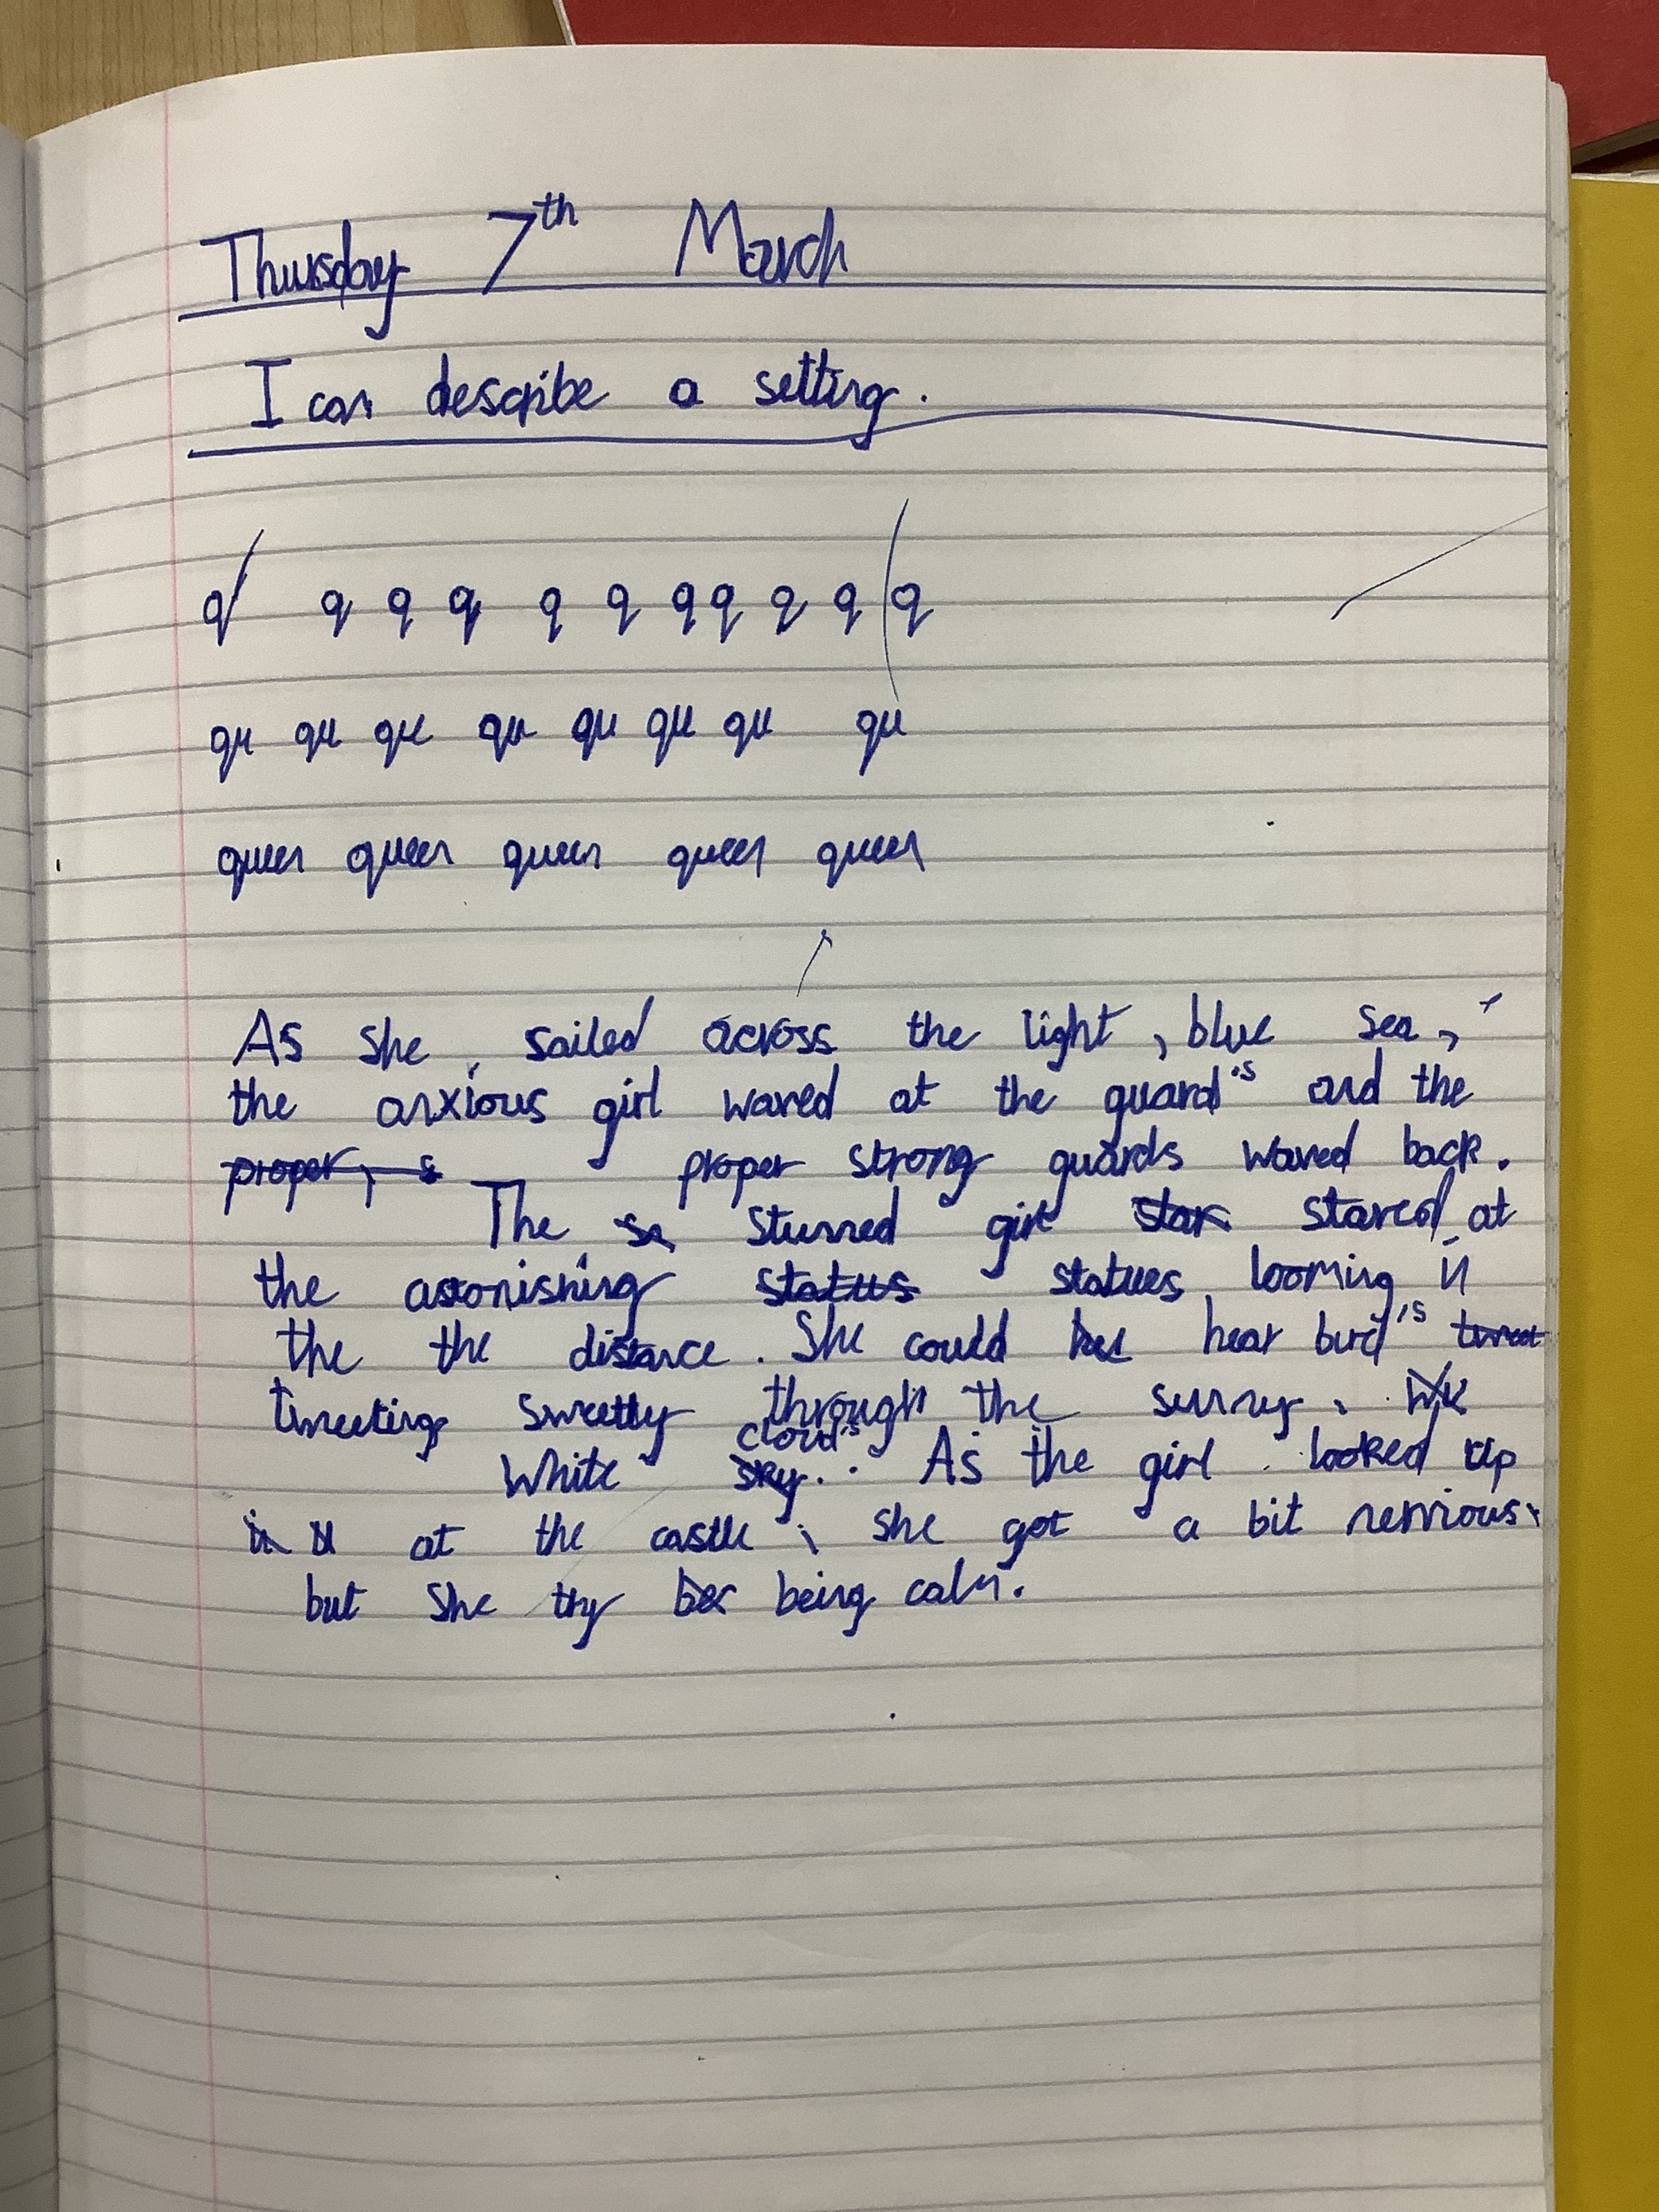 Thursday 7th March
I can describe a setting.
q q q q q q q q q q q
qu qu qu qu qu qu qu qu
queen queen queen queen queen
As she, sailed across the light, blue sea,
the anxious girl waved at the guard's and the
proper, s proper strong guards waved back.
The sa stunned girl star stared at
the astonishing status statues looming in
the the distance. She could her hear bird's tweet
tweeting sweetly through the sunny,
cloud's
White sky. As the girl looked up
in at the castle, she got a bit nervious,
but she try be being calm.